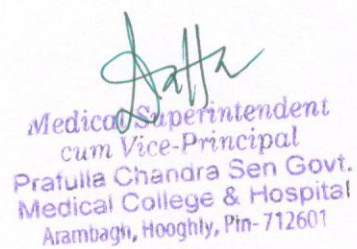 Datta
Medical Superintendent
cum Vice-Principal
Prafulla Chandra Sen Govt.
Medical College & Hospital
Arambagh, Hooghly, Pin-712601